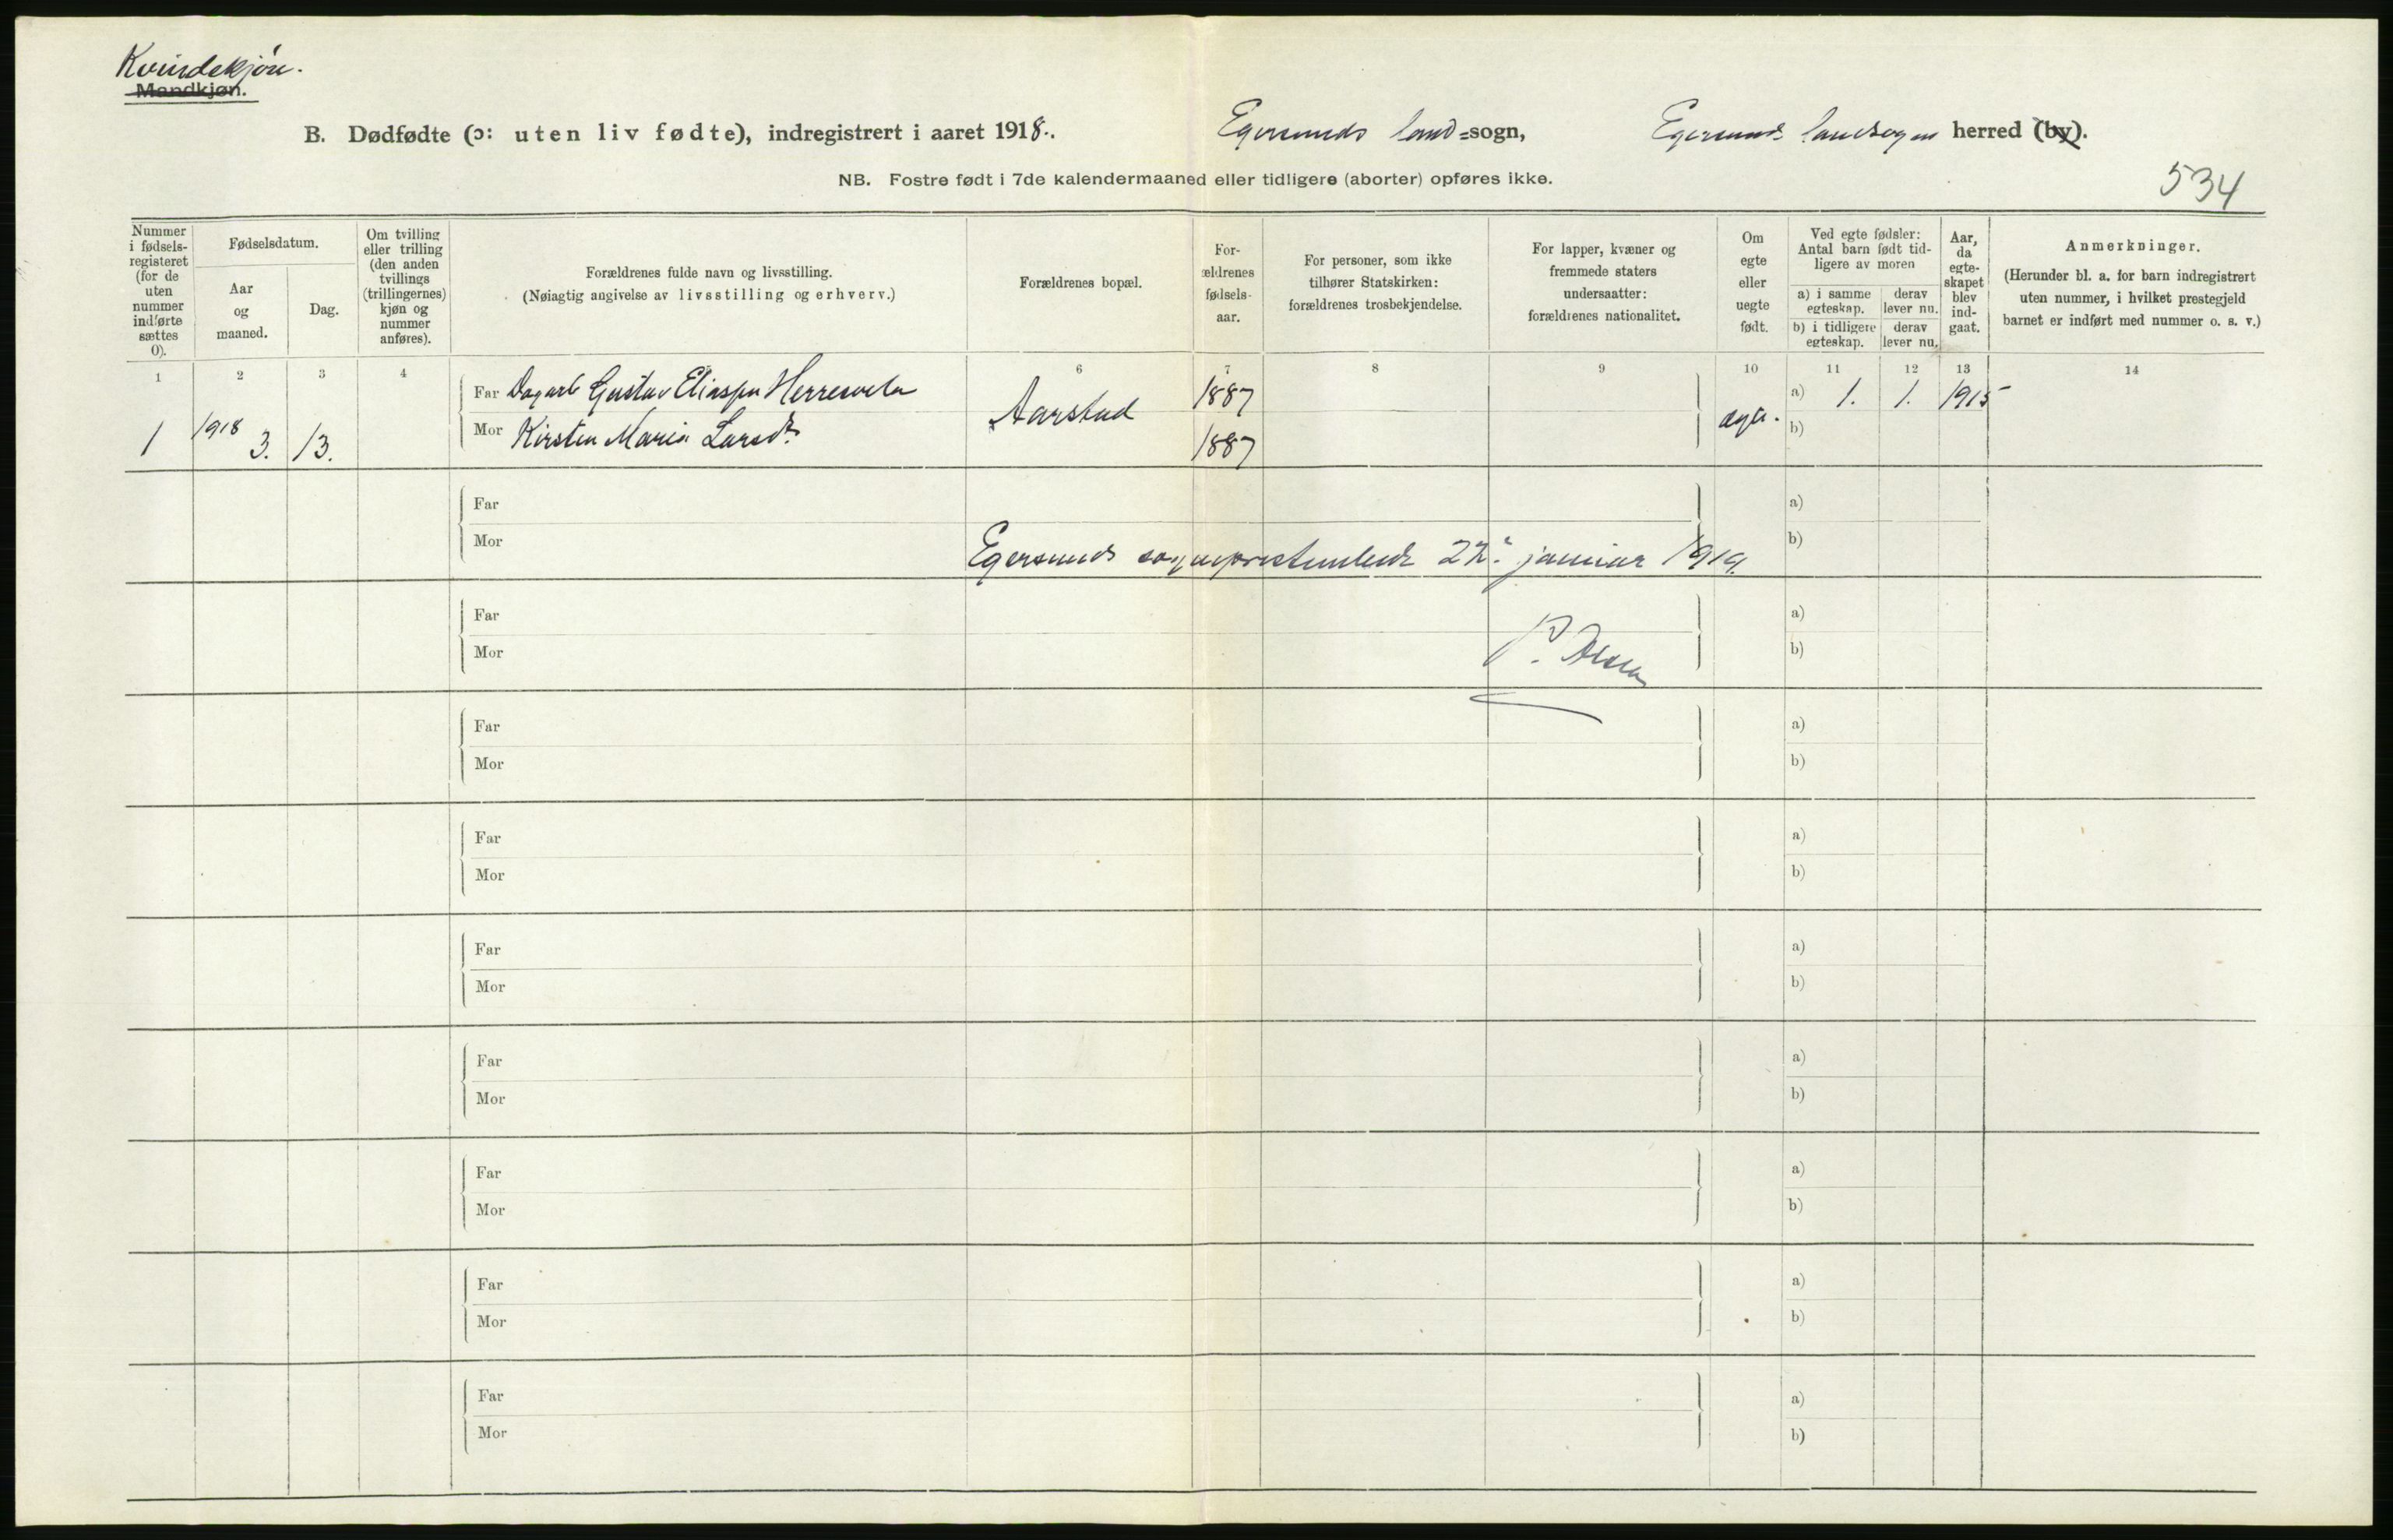 Kvindekjön.
Mandkjøn.
B. Dødfødte (ɔ: uten liv fødte), indregistrert i aaret 1918.. Egersunds land=sogn, Egersunds landsogns herred (by).
NB. Fostre født i 7de kalendermaaned eller tidligere (aborter) opføres ikke.
534
Nummer i fødsels-registeret (for de uten nummer indførte sættes 0).
Fødselsdatum.
Aar og maaned.
Dag.
Om tvilling eller trilling (den anden tvillings (trillingernes) kjøn og nummer anføres).
Forældrenes fulde navn og livsstilling.
(Nøiagtig angivelse av livsstilling og erhverv.)
Forældrenes bopæl.
For-ældrenes fødsels-aar.
For personer, som ikke tilhører Statskirken: forældrenes trosbekjendelse.
For lapper, kvæner og fremmede staters undersaatter: forældrenes nationalitet.
Om egte eller uegte født.
Ved egte fødsler: Antal barn født tid-ligere av moren
a) i samme egteskap.
derav lever nu.
b) i tidligere egteskap.
derav lever nu.
Aar, da egte-skapet blev ind-gaat.
Anmerkninger.
(Herunder bl. a. for barn indregistrert uten nummer, i hvilket prestegjeld barnet er indført med nummer o. s. v.)
1 2 3 4 6 7 8 9 10 11 12 13 14
Far Gustav Eliassen 1887 a) 1. 1. 1915
1 1918 3. 13. Aarstad ægte.
Mor Kirsten Maria Larsdt. 1887 b)
Far a)
Mor b)
Egersunds sogneprestembede 22. januar 1919.
Far a)
P. Olsen
Mor b)
Far a)
Mor b)
Far a)
Mor b)
Far a)
Mor b)
Far a)
Mor b)
Far a)
Mor b)
Far a)
Mor b)
Far a)
Mor b)